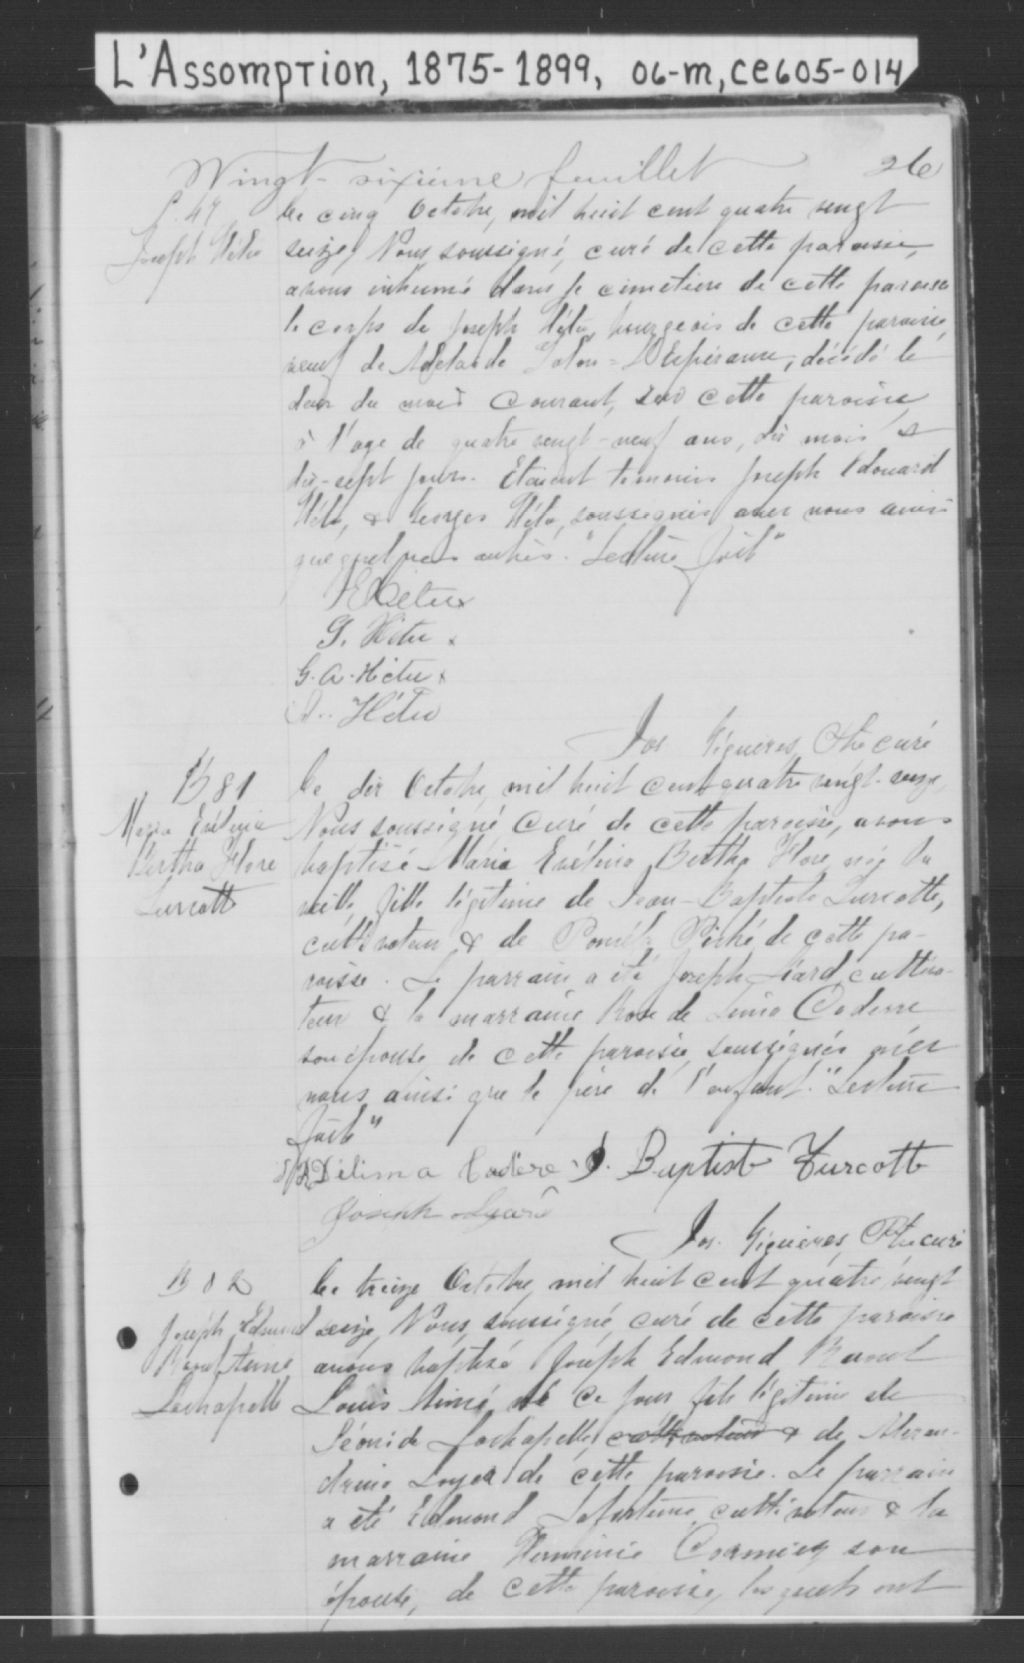 L'Assomption, 1875-1899, 06-m, ce605-014
Vingt-sixième feuillet 26
Le cinq Octobre, mil huit cent quatre vingt
Joseph Hétu seize, Nous, soussigné, curé de cette paroisse,
avons inhumé dans le cimetière de cette paroisse
le corps de Joseph Hétu, bourgeois de cette paroisse,
veuf de Adelaide L'Espérance, décédé le
deux du mois courant, cette paroisse
à l'age de quatre vingt-neuf ans, dix mois &
dix-sept jours. Etaient temoins Joseph Edouard
Hétu, & Georges Hétu, soussignés avec nous ainsi
que quelques autres. "Lecture faite"
Hetu
G. Hetu
G. A. Hetu
Hétu
Jos Ptre curé
B 81
Le dix Octobre, mil huit cent quatre vingt-seize,
Maria Evélina Nous soussigné Curé de cette paroisse, avons
Bertha Flore baptisé Maria Evélina Bertha Flore, née la
Turcotte veille, fille légitime de Jean-Baptiste Turcotte,
cultivateur & de de cette pa-
roisse. Le parrain a été Joseph cultiva-
teur & la marraine Rose de Lima Coderre
son épouse de cette paroisse, soussignés avec
nous ainsi que le père de l'enfant. "Lecture
faite"
Délima J. Baptiste Turcotte
Joseph
Jos. Ptre curé
B 82
Le treize Octobre, mil huit cent quatre vingt
Joseph Edmond seize, Nous, soussigné, curé de cette paroisse
avons baptisé Joseph Edmond Raoul
Lachapelle Louis Aimé, né ce jour fils légitime de
Léonide Lachapelle, cultivateur & de Alexan-
drine de cette paroisse. Le parrain
a été Edmond Lafortune, cultivateur & la
marraine Herminie Cormier son
épouse, de cette paroisse, lesquels ont